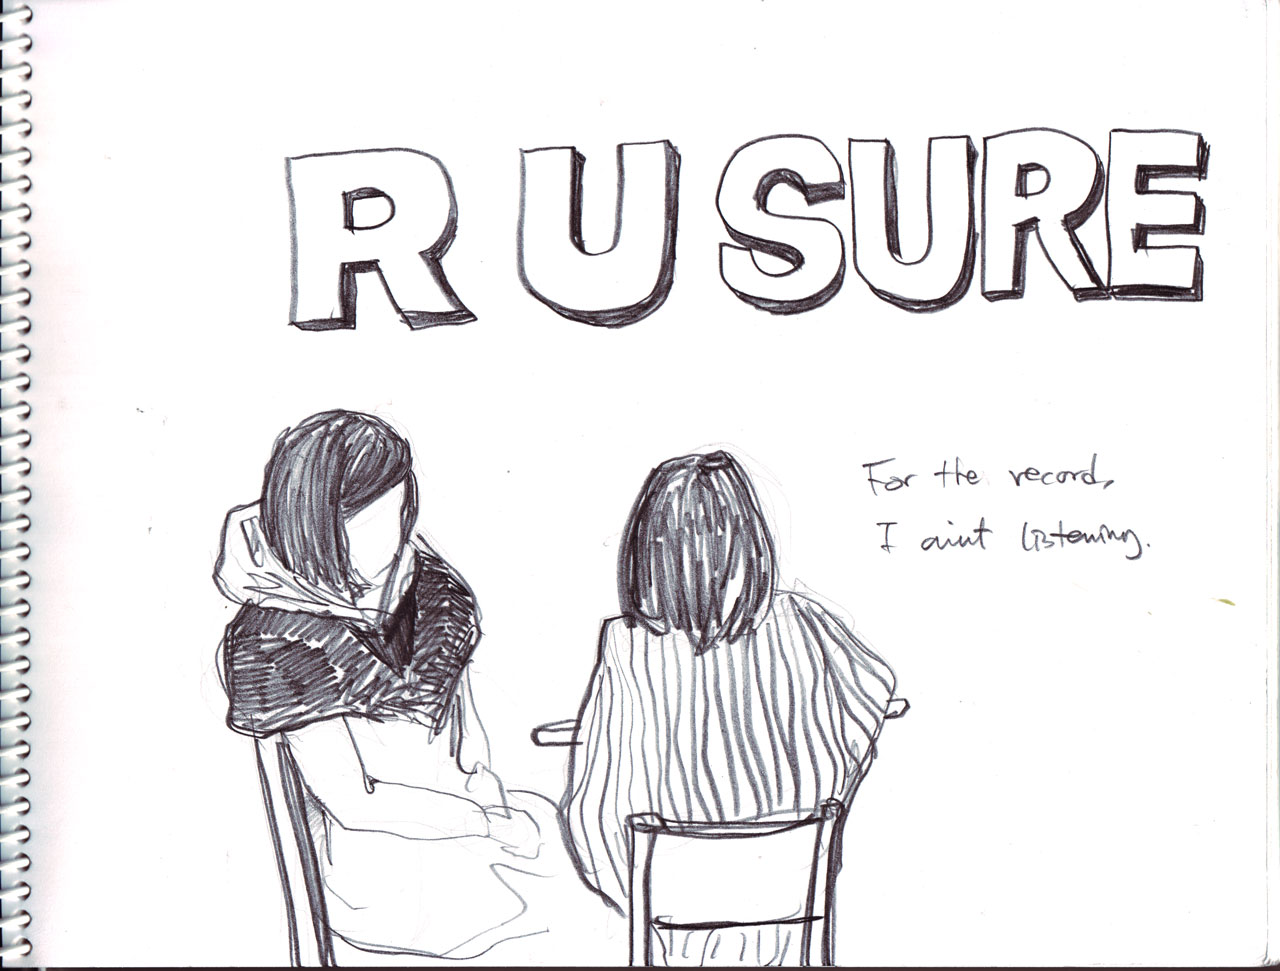 R U SURE
For the record,
I aint listening.